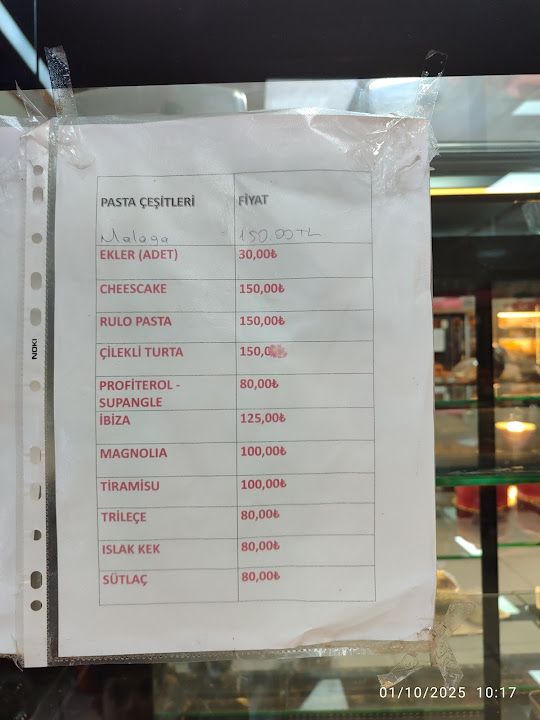 PASTA ÇEŞİTLERİ FİYAT
Malaga 150.00TL
EKLER (ADET) 30,00₺
CHEESCAKE 150,00₺
RULO PASTA 150,00₺
ÇİLEKLİ TURTA 150,0
PROFİTEROL - 80,00₺
SUPANGLE
İBİZA 125,00₺
MAGNOLIA 100,00₺
TİRAMİSU 100,00₺
TRİLEÇE 80,00₺
ISLAK KEK 80,00₺
SÜTLAÇ 80,00₺
NOKI
01/10/2025 10:17